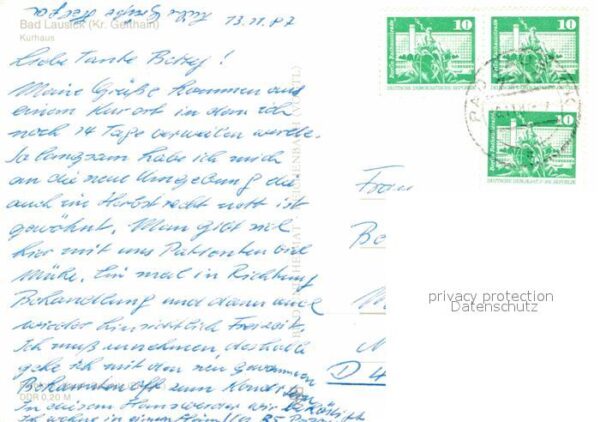 13.11.87
Bad Lausick (Kr. Geithain)
Kurhaus
Liebe Tante Betty!
Meine Grüße kommen aus
einem Kurort in dem ich
noch 14 Tage verweilen werde.
So langsam habe ich mich
an die neue Umgebung die
auch im Herbst recht nett ist
gewöhnt. Man gibt sich
hier mit uns Patienten viel
Mühe. Ein mal in Richtung
Behandlung und dann auch
wieder hinsichtlich Freizeit.
Ich muß abnehmen, deshalb
gehe ich mit den neu gewonnenen
Bekannten oft zum
DDR 0,20 M
In diesem Haus werden wir
Ich wohne in einem
10
10
10
DEUTSCHE DEMOKRATISCHE REPUBLIK
DEUTSCHE DEMOKRATISCHE REPUBLIK
DEUTSCHE DEMOKRATISCHE REPUBLIK
Frau
Be
D 4
privacy protection
Datenschutz